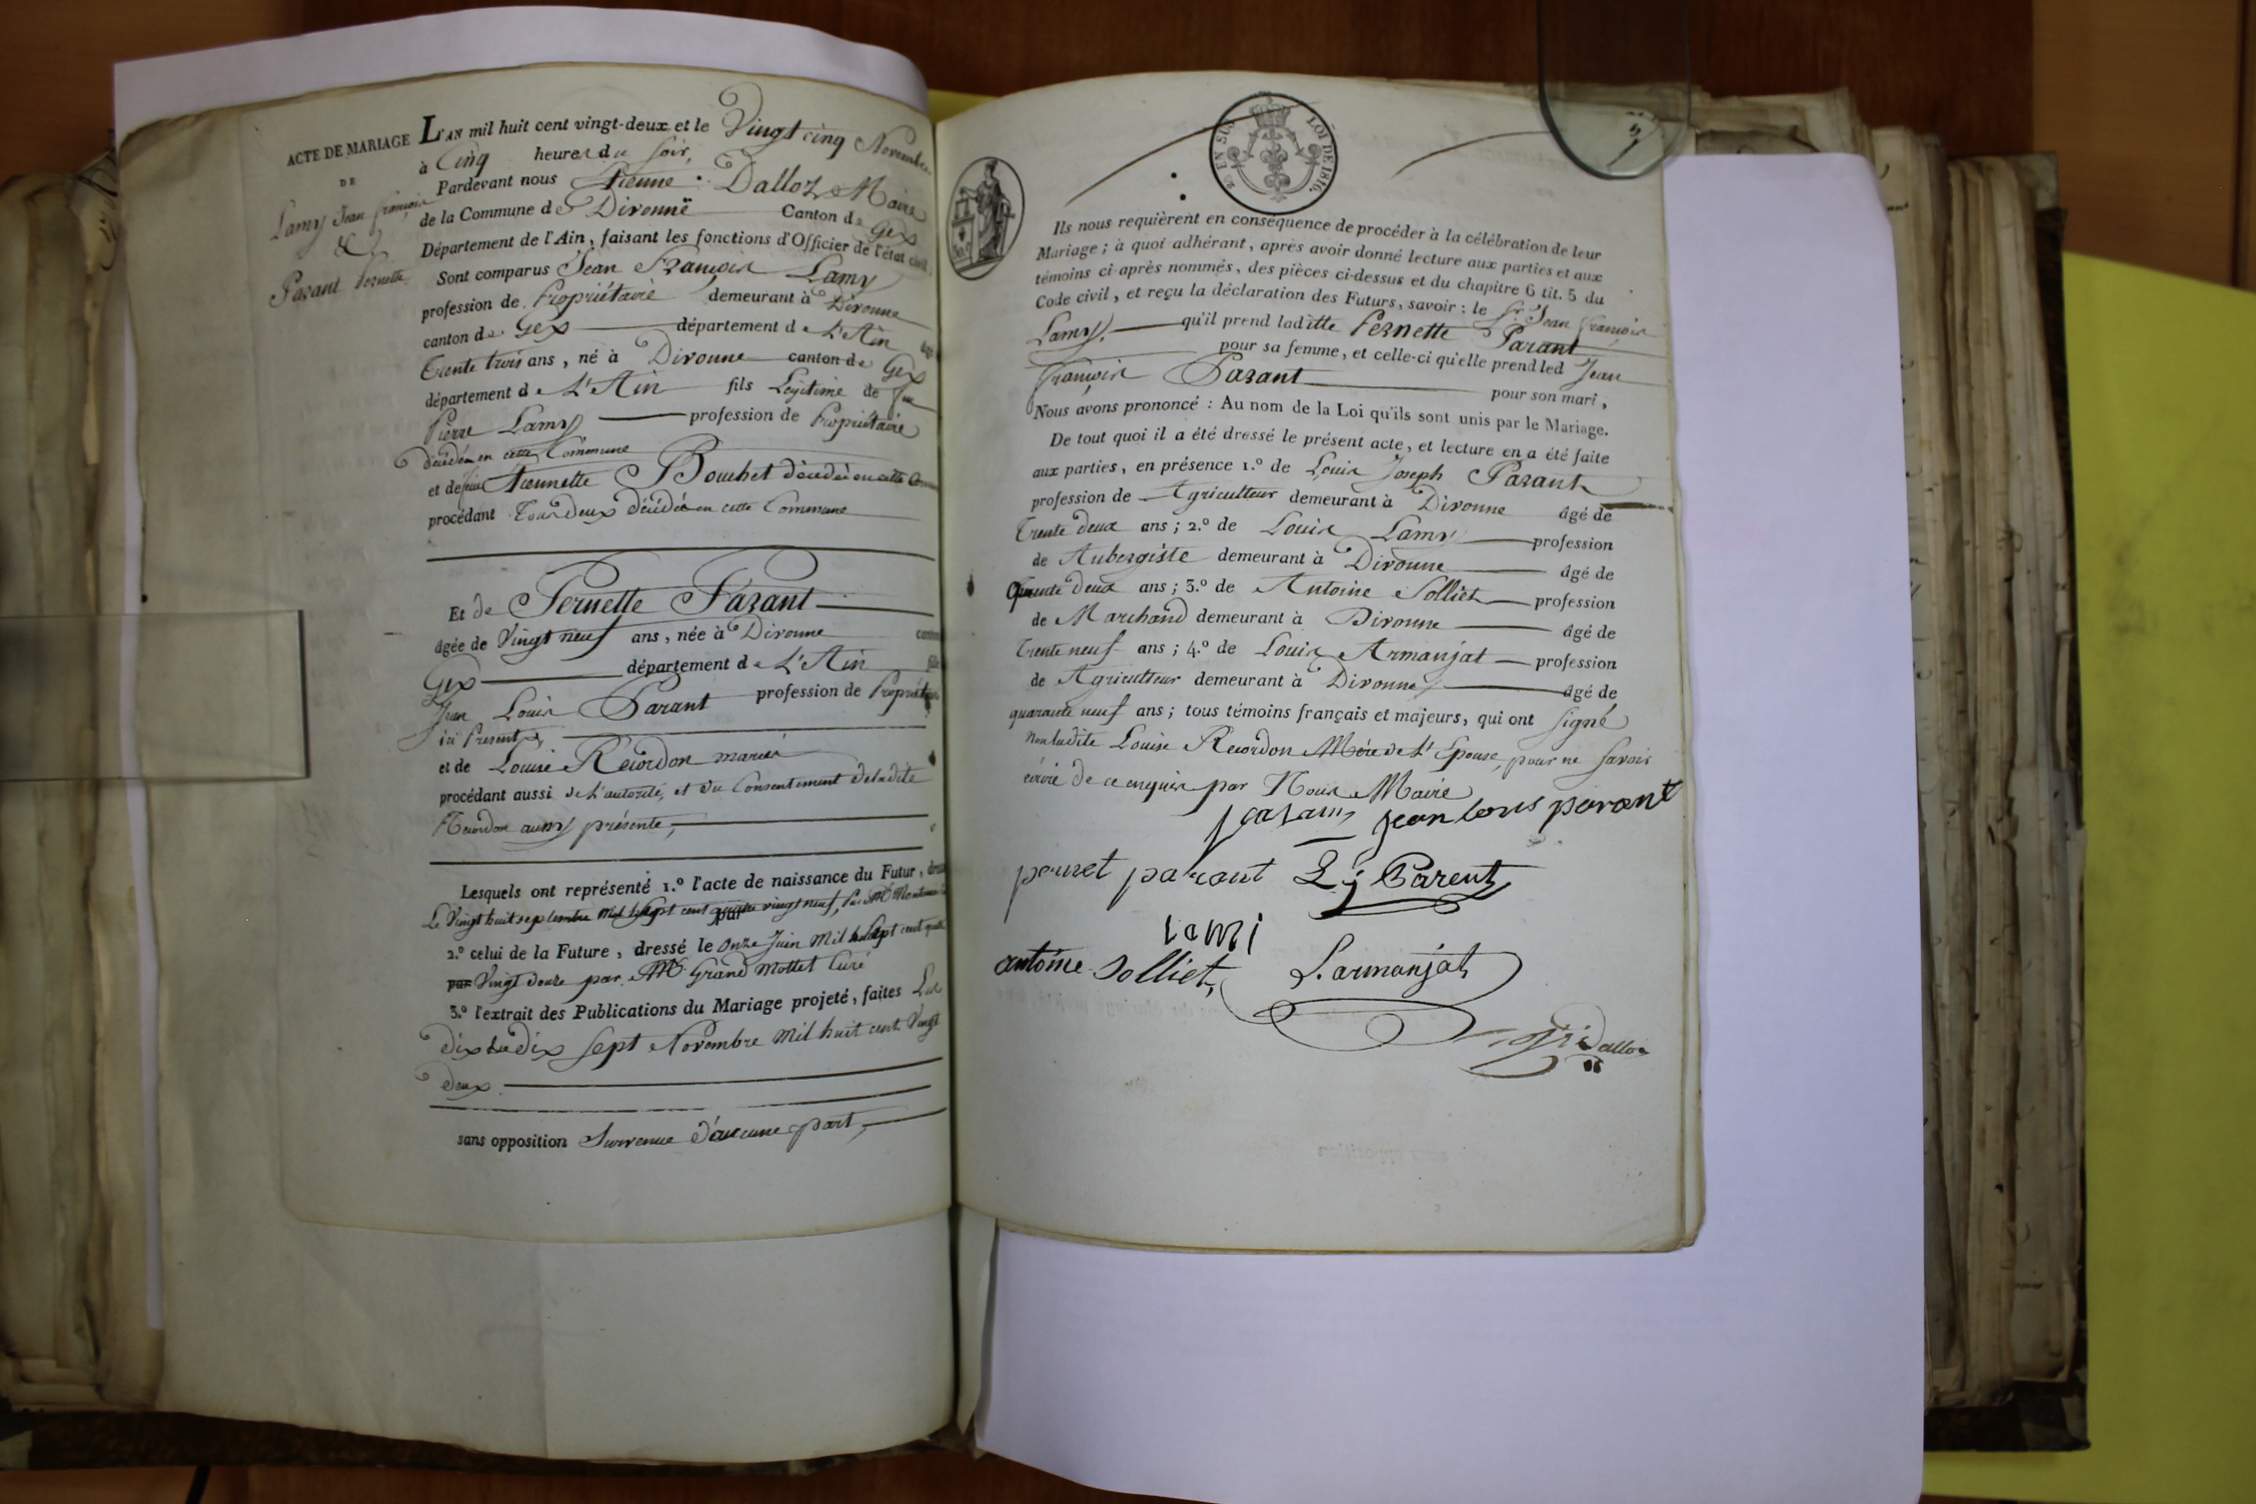 ACTE DE MARIAGE
DE
Lamy Jean françois
&
Parant Pernette
L'AN mil huit cent vingt-deux et le Vingt cinq Novembre
à Cinq heures du soir,
Pardevant nous Etienne Dalloz Maire
de la Commune de Divonne Canton de Gex
Département de l'Ain, faisant les fonctions d'Officier de l'état civil,
Sont comparus Jean François Lamy
profession de Propriétaire demeurant à Divonne
canton de Gex département de L'Ain âgé
Trente trois ans, né à Divonne canton de Gex
département de L'Ain fils Légitime de feu
Pierre Lamy profession de Propriétaire
décédé en cette Commune
et de feue Etiennette Bouchet décédée en cette Commune
procédant Tous deux décédés en cette Commune
Et de Pernette Parant
âgée de Vingt neuf ans, née à Divonne canton
Gex département de L'Ain fille
Jean Louis Parant profession de Propriétaire
ici Present,
et de Louise Recordon mariés
procédant aussi de L'autorité, et du Consentement de ladite
Recordon aussy présente,
Lesquels ont représenté 1.º l'acte de naissance du Futur, dressé
Le Vingt huit septembre mil Sept cent quatre vingt neuf, par Mr
2.º celui de la Future, dressé le onze Juin Mil Sept cent quatre
par Vingt douze par Mr Grand Mottet Curé
3.º l'extrait des Publications du Mariage projeté, faites Les
dix & dix sept Novembre mil huit cent Vingt
deux
sans opposition Survenue d'aucune part,
EN SUS LOI DE 1816.
Ils nous requièrent en conséquence de procéder à la célébration de leur
Mariage; à quoi adhérant, après avoir donné lecture aux parties et aux
témoins ci-après nommés, des pièces ci-dessus et du chapitre 6 tit. 5 du
Code civil, et reçu la déclaration des Futurs, savoir: le Sr Jean françois
Lamy, qu'il prend laditte Pernette Parant
pour sa femme, et celle-ci qu'elle prend led Jean
François Parant pour son mari,
Nous avons prononcé: Au nom de la Loi qu'ils sont unis par le Mariage.
De tout quoi il a été dressé le présent acte, et lecture en a été faite
aux parties, en présence 1.º de Louis Joseph Parant
profession de Agriculteur demeurant à Divonne âgé de
Trente deux ans; 2.º de Louis Lamy profession
de Aubergiste demeurant à Divonne âgé de
Trente deux ans; 3.º de Antoine Solliet profession
de Marchand demeurant à Divonne âgé de
Trente neuf ans; 4.º de Louis Armanjat profession
de Agriculteur demeurant à Divonne âgé de
quarante neuf ans; tous témoins français et majeurs, qui ont signé
Non ladite Louise Recordon Mère de L'Epouse, pour ne savoir
écrire de ce enquise par Nous Maire
jean louis parant
pernet parant L j Parent
Lami
antoine Solliet, L. armanjat
Dalloz